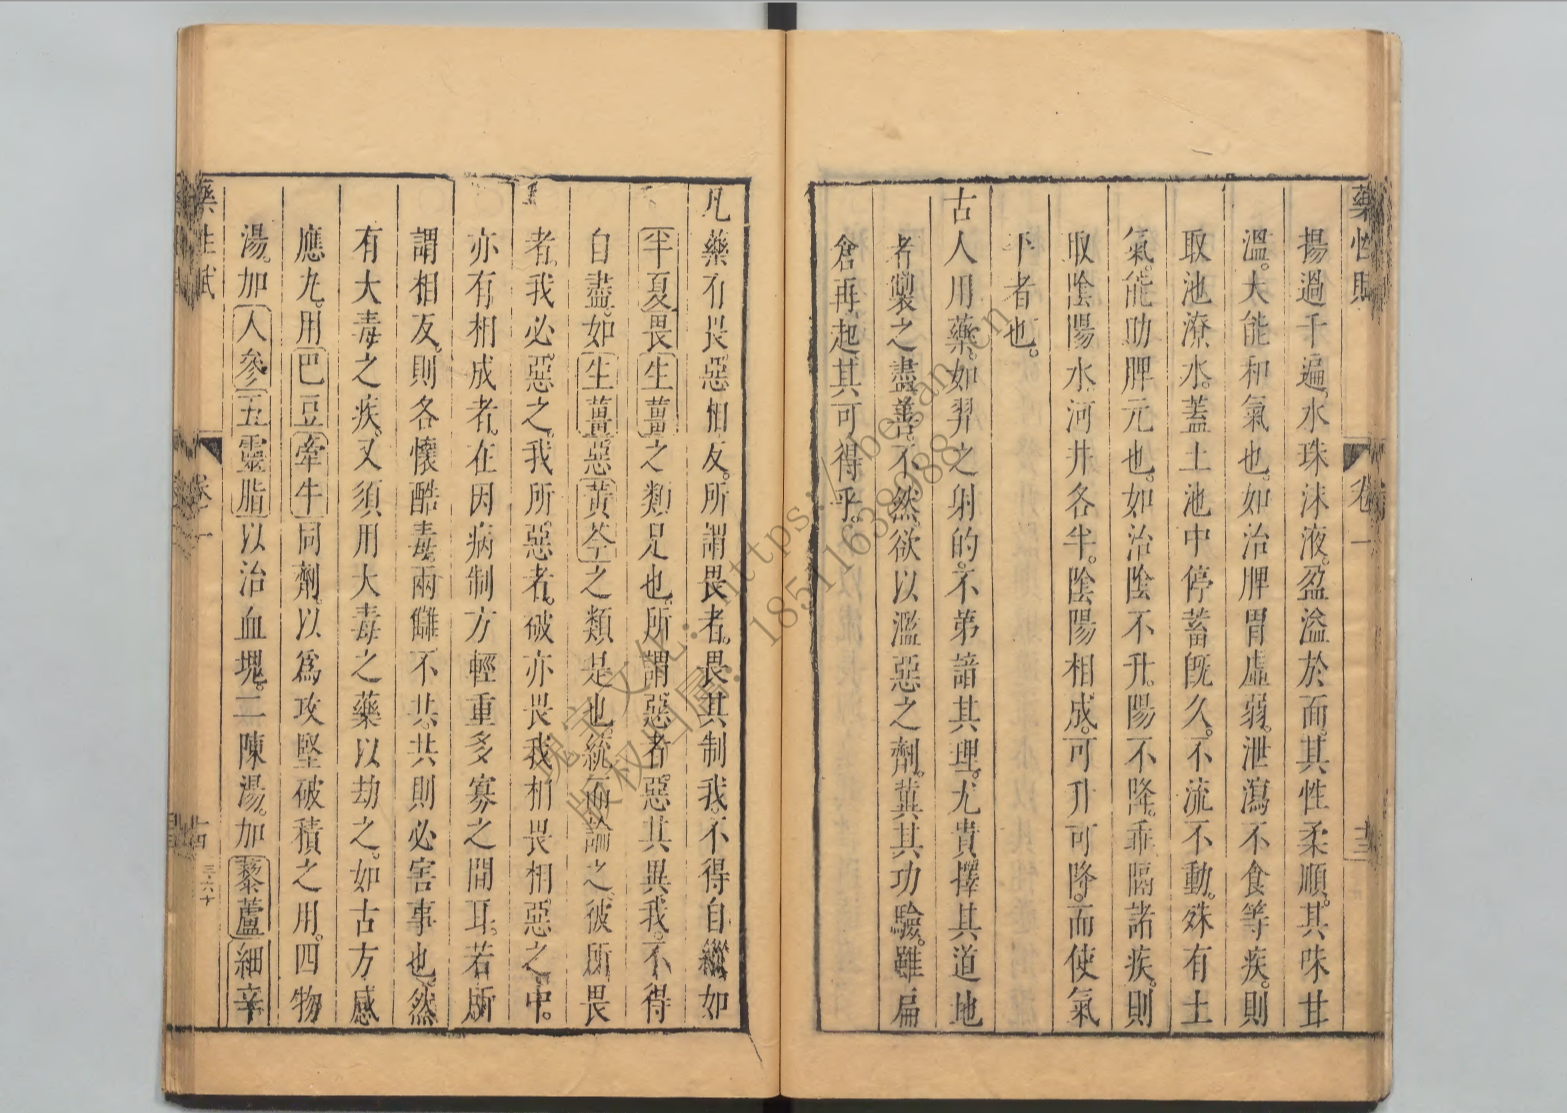 藥性賦
卷一
十三
揚過千遍。水珠沫液。盈溢於面。其性柔順。其味甘
溫。大能和氣也。如治脾胃虛弱。泄瀉不食等疾。則
取池潦水。蓋土池中停蓄旣久。不流不動。殊有土
氣。能助脾元也。如治陰不升。陽不降。乖隔諸疾。則
取陰陽水。河井各半。陰陽相成。可升可降。而使氣
下者也。
古人用藥。如羿之射的。不第諳其理。尤貴擇其道地
者。製之盡善。不然。欲以濫惡之劑。冀其功驗。雖扁
倉再起。其可得乎。
凡藥有畏惡相反。所謂畏者。畏其制我。不得自縱。如
半夏畏生薑之類是也。所謂惡者。惡其異我。不得
自盡。如生薑惡黃芩之類是也。統而論之。彼所畏
者。我必惡之。我所惡者。彼亦畏我。相畏相惡之中。
亦有相成者。在因病制方輕重多寡之間耳。若所
謂相反。則各懷酷毒。兩讎不共。共則必害事也。然
有大毒之疾。又須用大毒之藥以劫之。如古方感
應丸。用巴豆牽牛同劑。以爲攻堅破積之用。四物
湯。加人參五靈脂以治血塊。二陳湯。加藜蘆細辛
藥性賦
卷一
十四
三六十
瑰宝文化: https://beisan.cn
版权归属: 18511638988